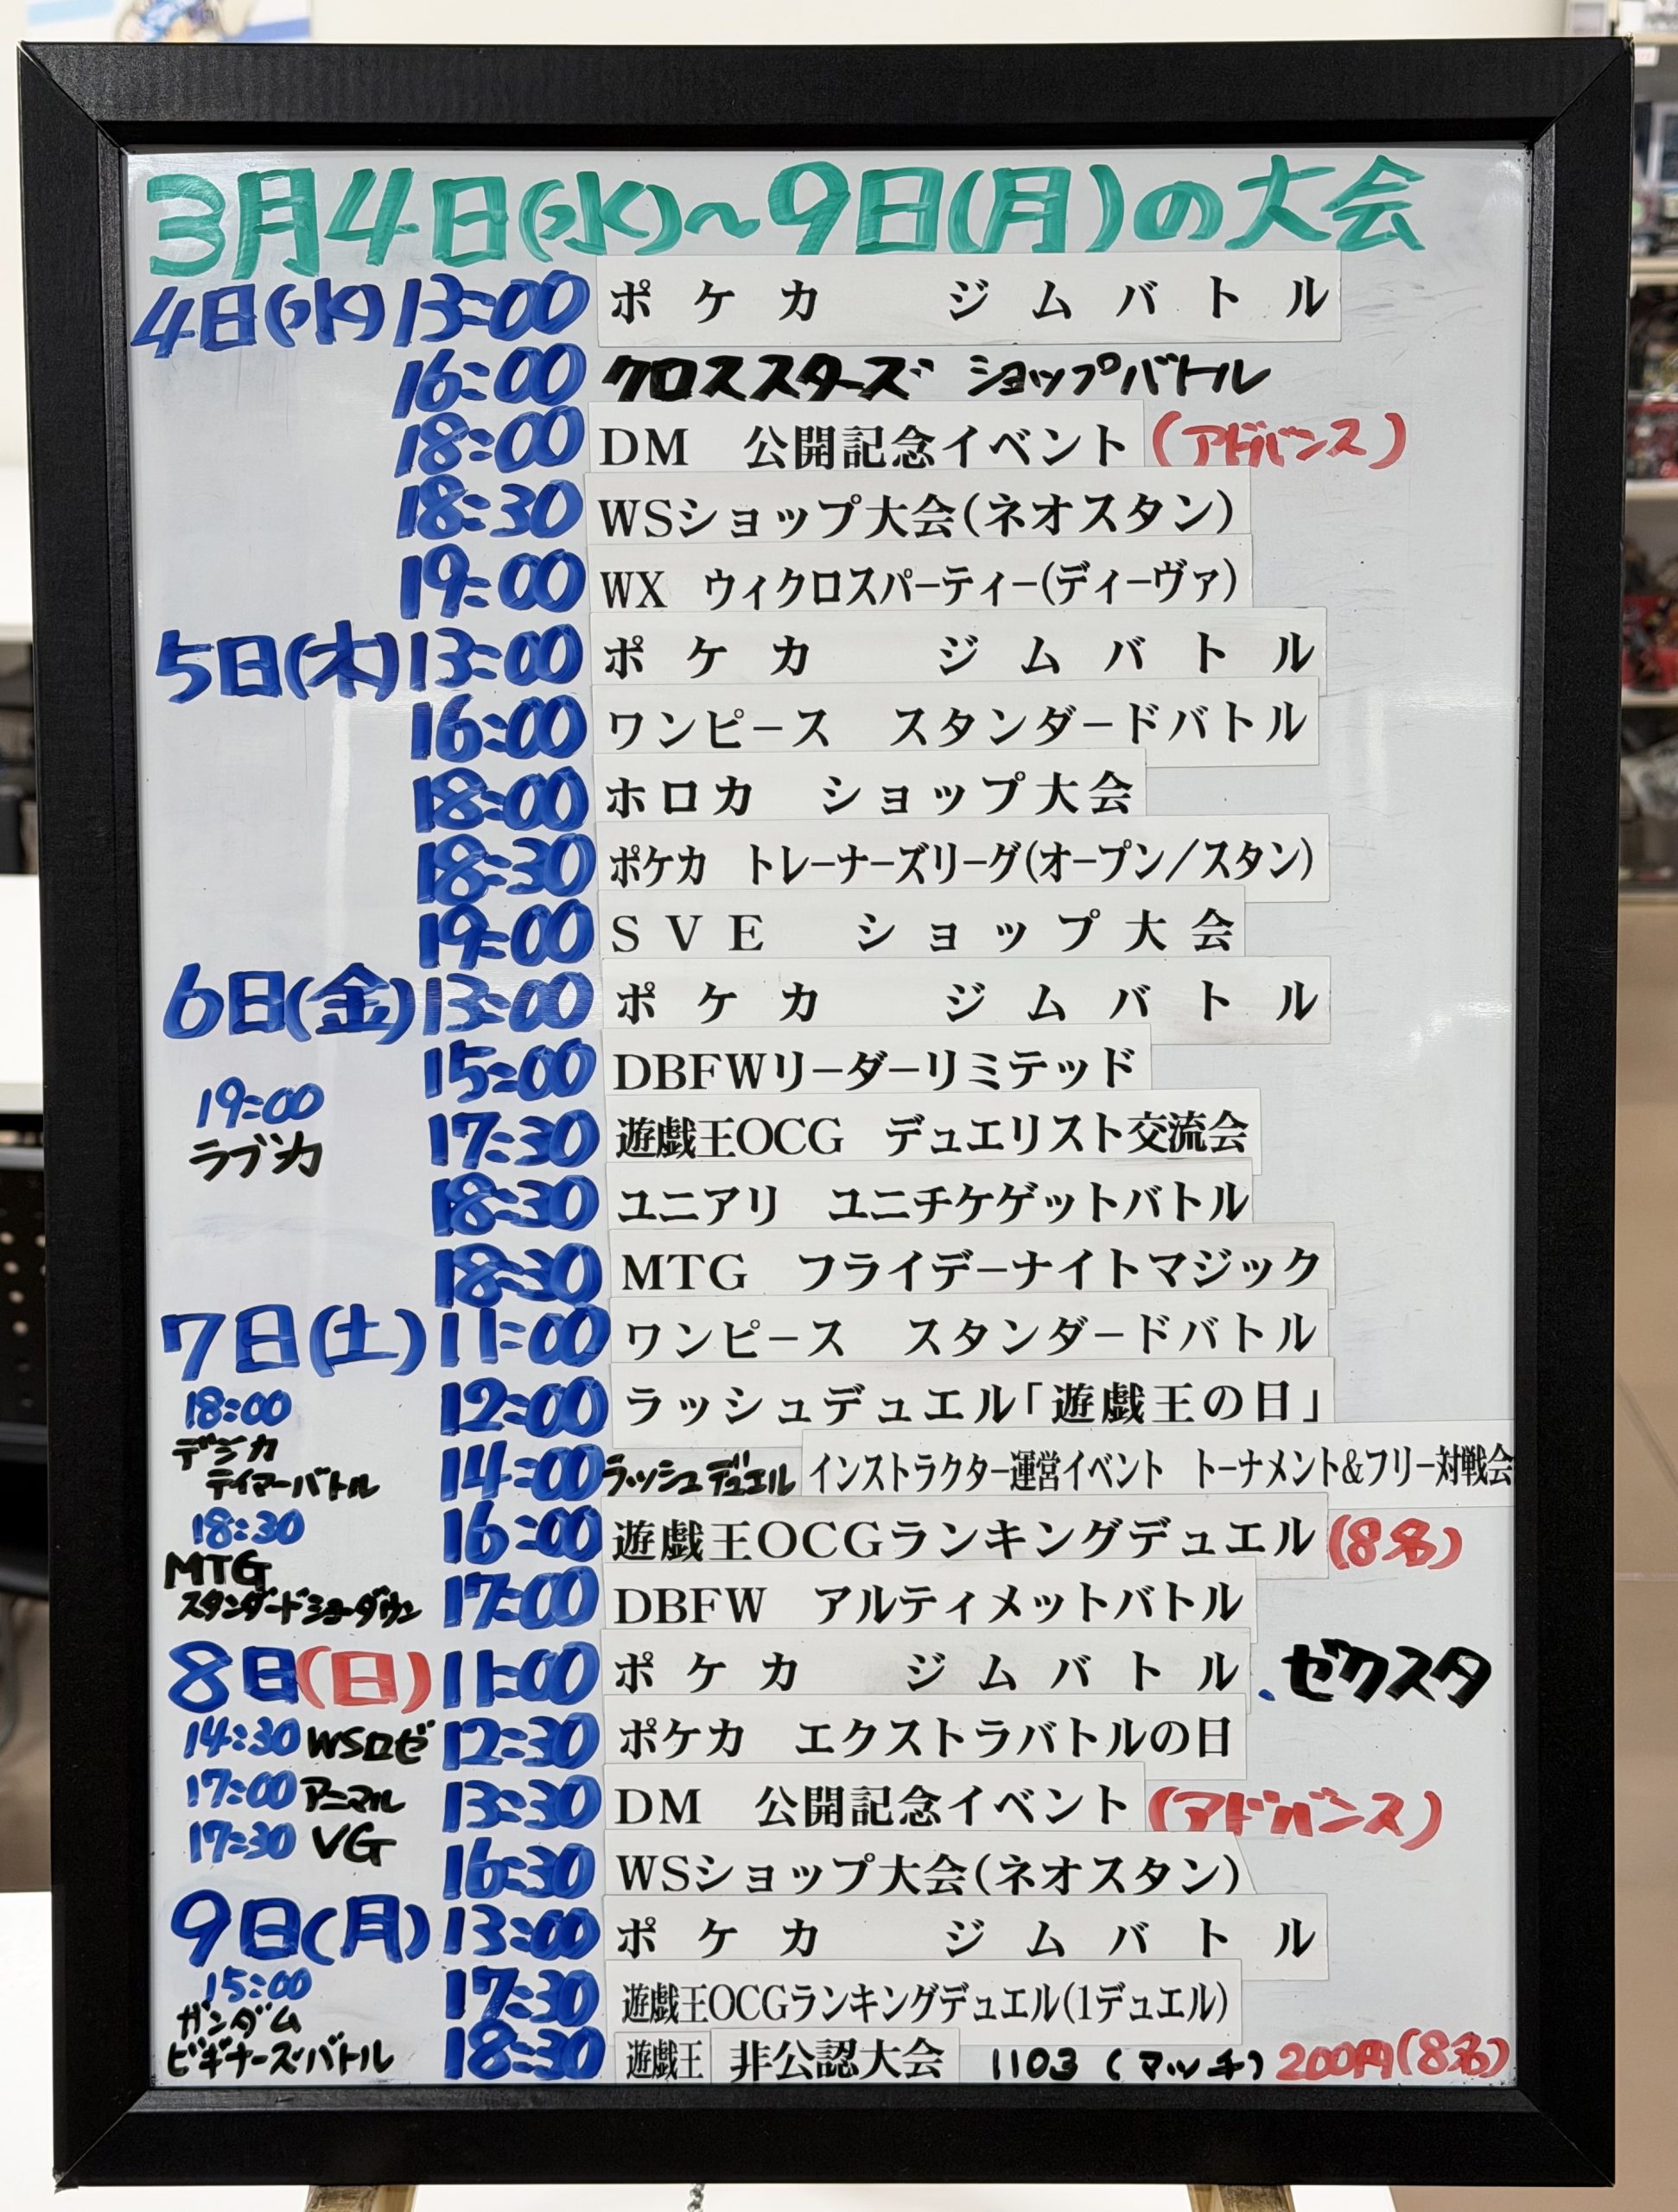 3月4日(水)～9日(月)の大会
4日(水) 13:00 ポケカ ジムバトル
16:00 クロススターズ ショップバトル
18:00 DM 公開記念イベント (アドバンス)
18:30 WSショップ大会(ネオスタン)
19:00 WX ウィクロスパーティー(ディーヴァ)
5日(木) 13:00 ポケカ ジムバトル
16:00 ワンピース スタンダードバトル
18:00 ホロカ ショップ大会
18:30 ポケカ トレーナーズリーグ(オープン/スタン)
19:00 SVE ショップ大会
6日(金) 13:00 ポケカ ジムバトル
15:00 DBFWリーダーリミテッド
19:00
ラブカ
17:30 遊戯王OCG デュエリスト交流会
18:30 ユニアリ ユニチケゲットバトル
18:30 MTG フライデーナイトマジック
7日(土) 11:00 ワンピース スタンダードバトル
18:00
デジカ
テイマーバトル
12:00 ラッシュデュエル「遊戯王の日」
14:00 ラッシュデュエル インストラクター運営イベント トーナメント&フリー対戦会
18:30
MTG
スタンダードショーダウン
16:00 遊戯王OCGランキングデュエル (8名)
17:00 DBFW アルティメットバトル
8日(日) 11:00 ポケカ ジムバトル .ゼクスタ
14:30 WSロゼ
17:00 アニマル
17:30 VG
12:30 ポケカ エクストラバトルの日
13:30 DM 公開記念イベント (アドバンス)
16:30 WSショップ大会(ネオスタン)
9日(月) 13:00 ポケカ ジムバトル
15:00
ガンダム
ビギナーズバトル
17:30 遊戯王OCGランキングデュエル(1デュエル)
18:30 遊戯王 非公認大会 1103 (マッチ) 200円(8名)